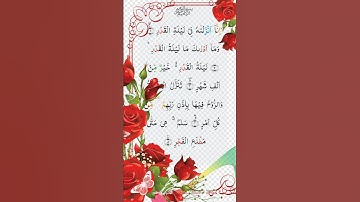 إِنَّا أَنْزَلْنَهُ فِي لَيْلَةِ الْقَدْرِ
وَمَا أَدْرَىٰكَ مَا لَيْلَةُ الْقَدْرِ
لَيْلَةُ الْقَدْرِ خَيْرٌ مِّنْ
أَلْفِ شَهْرٍ تَنَزَّلُ
وَالرُّوحُ فِيهَا بِإِذْنِ رَبِّهِمْ
كُلِّ أَمْرٍ سَلَمٌ هِيَ حَتَّىٰ
مَطْلَعِ الْفَجْرِ